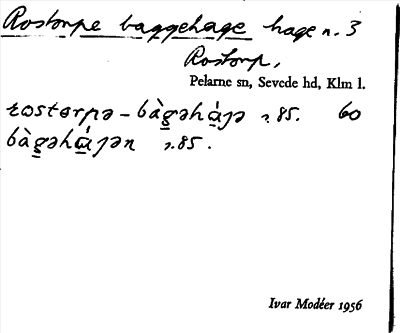 Rostorpe baggehage hage n. 3
Rostorp,
Pelarne sn, Sevede hd, Klm l.
rostɵrpə - bàgəhá̱ɟə 2.85. 60
bàgəhá̱ɟən 2.85.
Ivar Modéer 1956